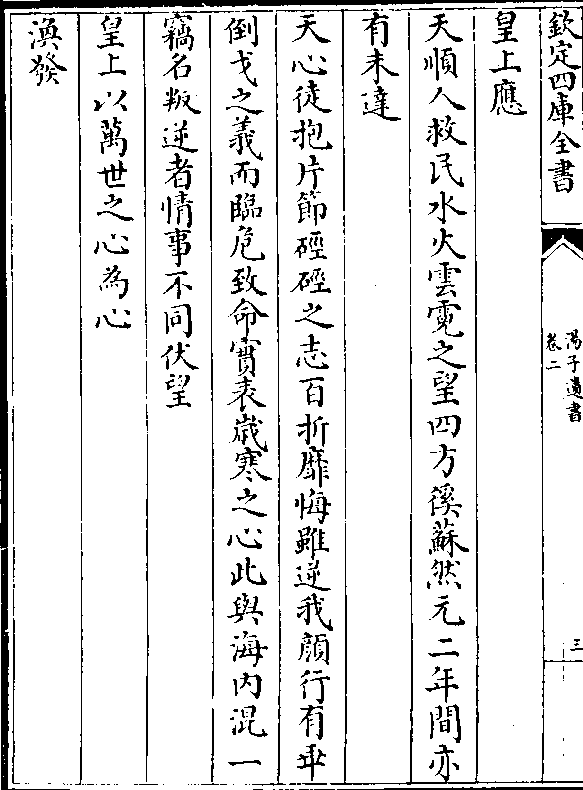 欽定四庫全書
湯子遺書
卷二
三
皇上應
天順人救民水火雲霓之望四方徯蘇然元二年間亦
有未達
天心徒抱片節硜硜之志百折靡悔雖逆我顏行有乖
倒戈之義而臨危致命實表歲寒之心此與海内混一
竊名叛逆者情事不同伏望
皇上以萬世之心為心
渙發